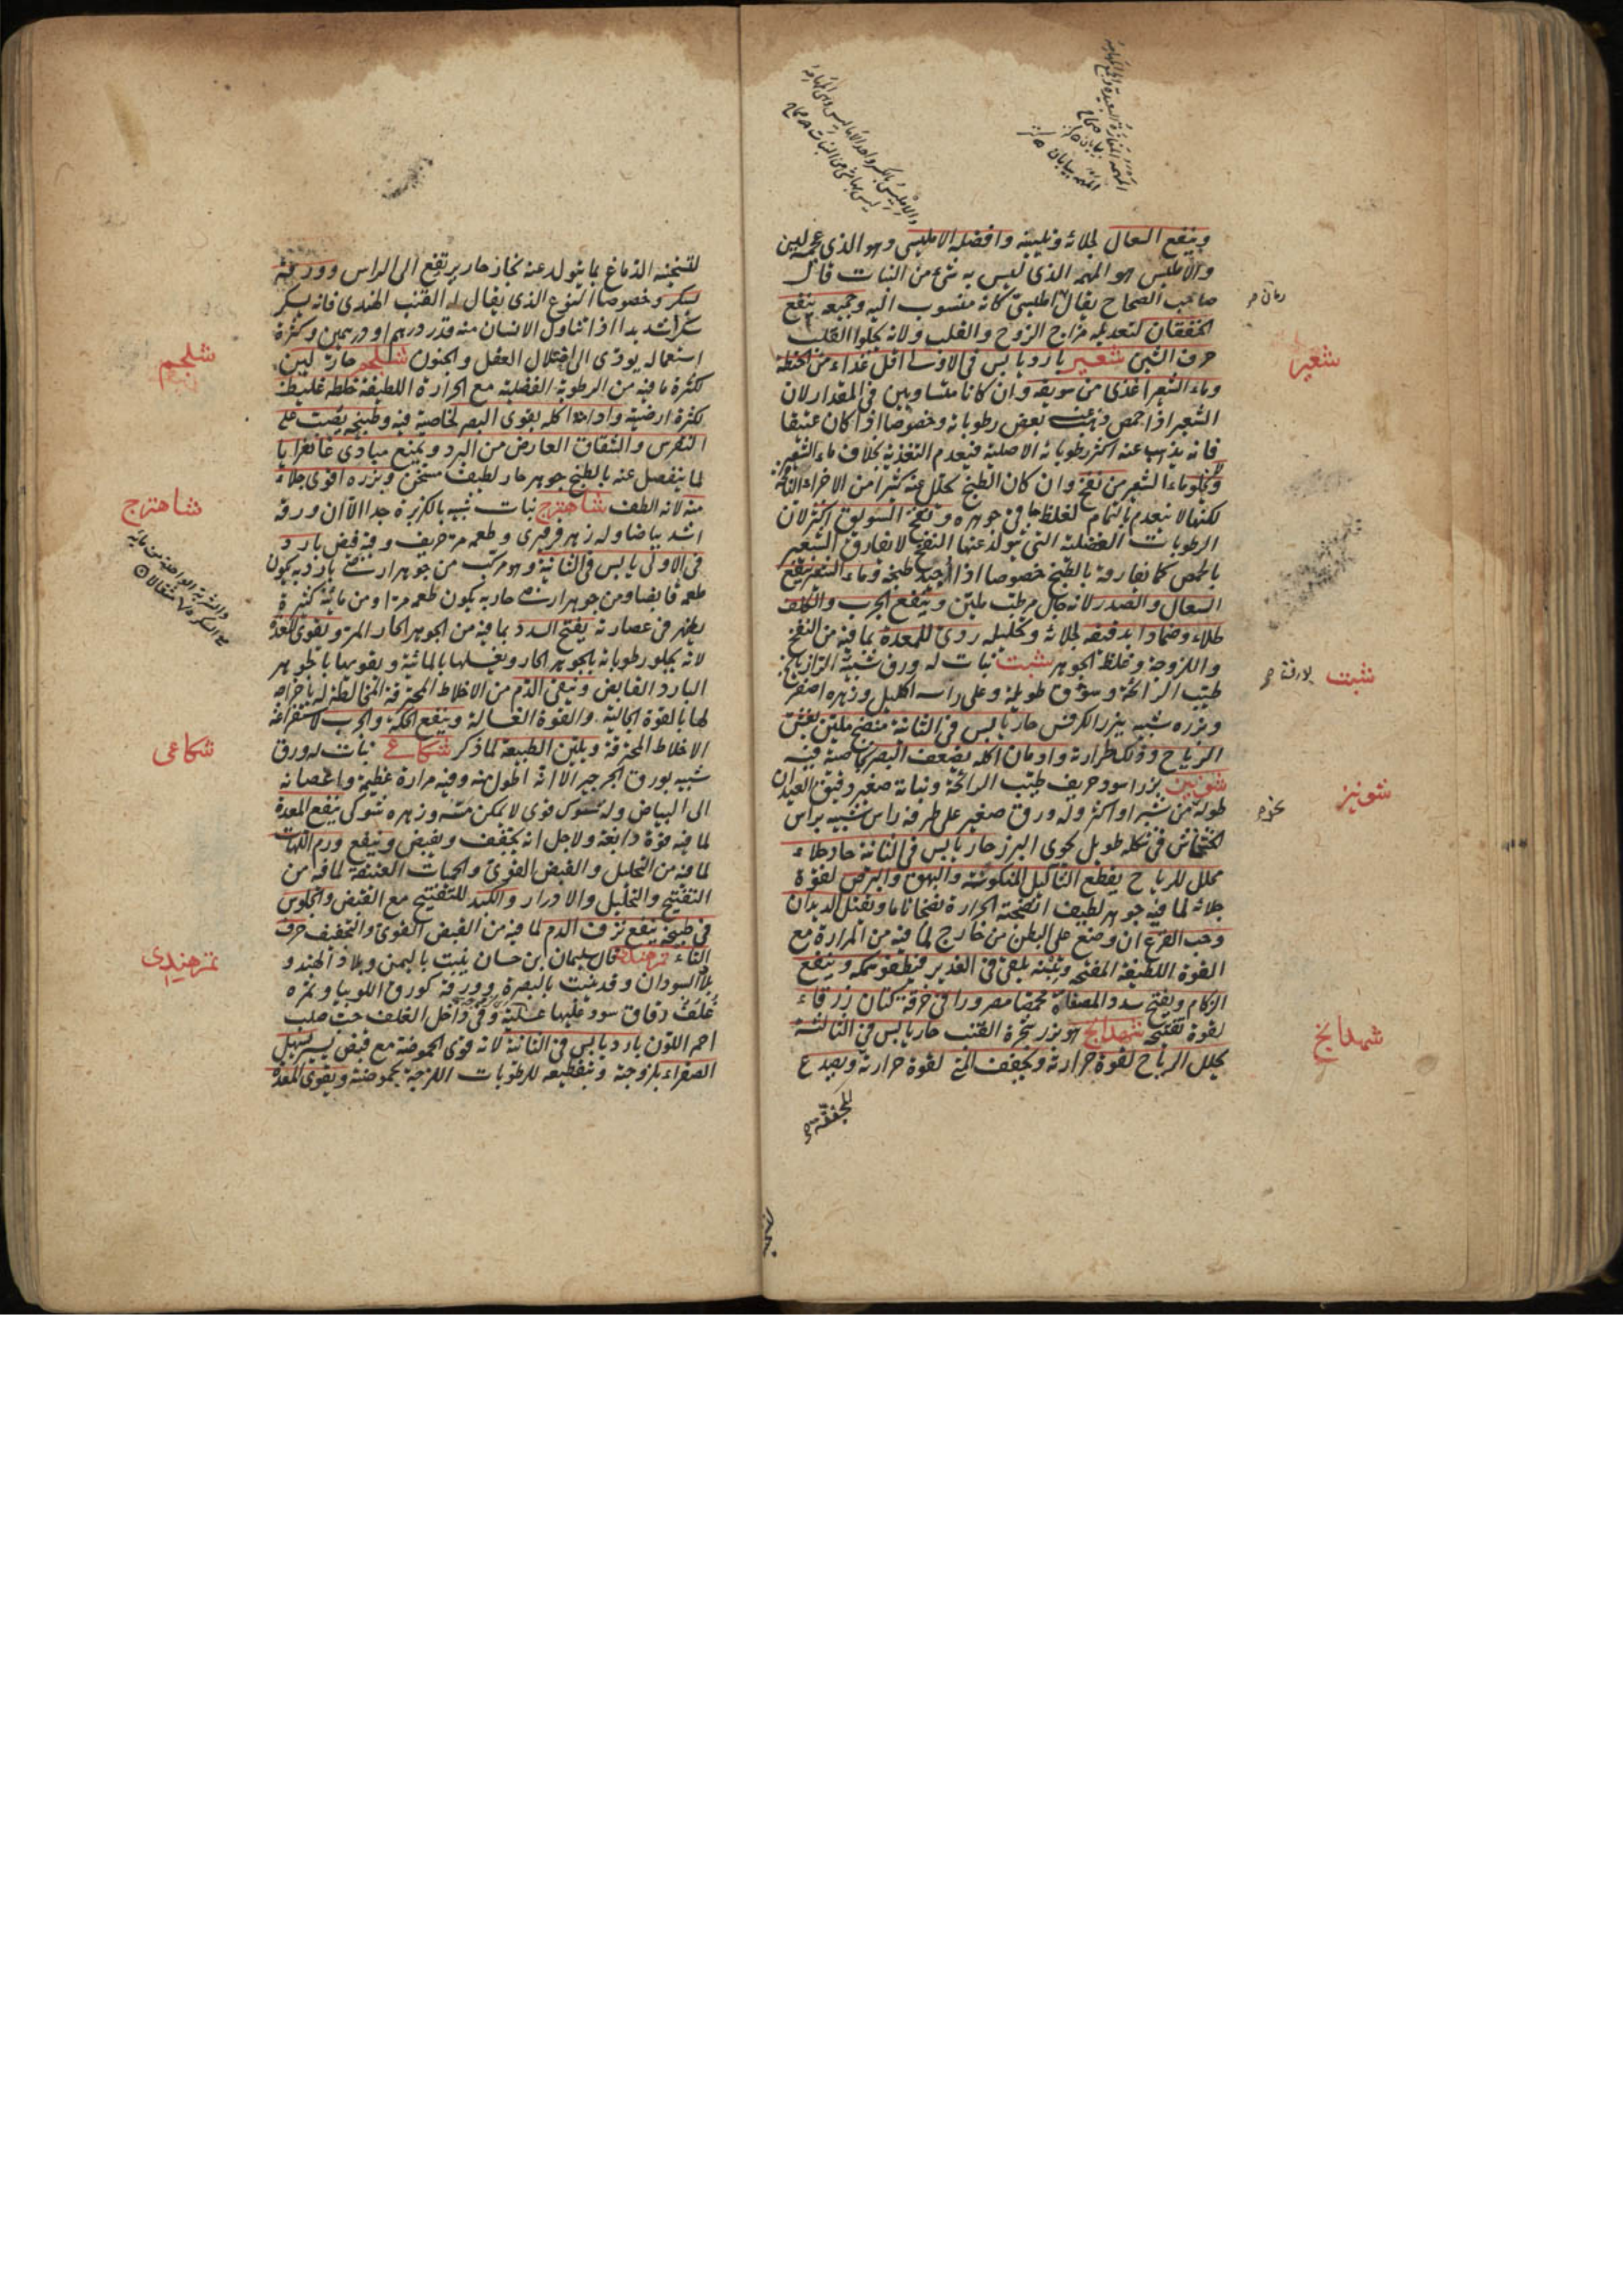 وينفع السعال لجلائه وتليينه وافضله الامليسي وهو الذي عجمه لين
والامليس هو المهمه الذي ليس به شئ من النبات قال
صاحب الصحاح يقال امليسي كانه منسوب اليه وجميعه ينفع
الخفقان لتعديله مزاج الروح والقلب ولانه يجلوا القلب
حرف الشين شعير بارد يابس في الاولى اقل غذاء من الحنطة
وماء الشعير اغذى من سويقه وان كانا متساويين في المقدار لان
الشعير اذا حمص ذهبت بعض رطوباته وخصوصا اذا كان عتيقا
فانه يذهب عنه اكثر رطوباته الاصلية فيعدم التغذية بخلاف ماء الشعير
ولا يخلو ماء الشعير من نفخ وان كان الطبخ يحلل عنه كثيرا من الاجزاء النافخة
لكنها لا ينعدم بالتمام لغلظ ما في جوهره ونفخ السويق اكثر لان
الرطوبات الفضلية التي يتولد عنها النفخ لا تفارق الشعير
بالحمص كما تفارقه بالطبخ خصوصا اذا اجيد طبخه وماء الشعير ينفع
السعال والصدر لانه جال مرطب ملين وينفع الجرب والكلف
طلاء وضمادا بدقيقه لجلائه وتحليله ردئ للمعدة بما فيه من النفخ
واللزوجة وغلظ الجوهر شبت نبات له ورق شبيه الرازيانج
طيب الرائحة وسوق طويلة وعلى راسه اكليل وزهره اصفر
وبزره شبيه ببزر الكرفس حار يابس في الثانية منضج ملين يفش
الرياح وذلك لحرارته وادمان اكله يضعف البصر بخاصية فيه
شونيز بزر اسود حريف طيب الرائحة ونباته صغير دقيق العيدان
طوله من شبر او اكثر وله ورق صغير على طرفه راس شبيه براس
الخشخاش في شكله طويل يحوى البزر حار يابس في الثانية حاد جلاء
محلل للرياح يقطع الثآليل المنكوسة والبهق والبرص لقوة
جلائه لما فيه جوهر لطيف انضجته الحرارة نضجا تاما ويقتل الديدان
وحب القرع ان وضع على البطن من خارج لما فيه من المرارة مع
القوة اللطيفة المفتحة وتبنه يلقى في الغدير فيطفو سمكه وينفع
الزكام ويفتح سدد المصفاة محمصا مصرورا في خرقة كتان زرقاء
لقوة تفتيحه شهدانج هو بزر شجرة القنب حار يابس في الثالثة
يحلل الرياح لقوة حرارته ويجفف المني لقوة حرارته ويصدع
شعير
شبت
شونيز
شهدانج
لتسخينه الدماغ بما يتولد عنه بخار حار يرتفع الى الراس وورقه
يسكر وخصوصا النوع الذي يقال له القنب الهندي فانه يسكر
سكرا شديدا اذا تناول الانسان منه قدر درهم او درهمين وكثرة
استعماله يودى الى اختلال العقل والجنون شلجم حار لين
لكثرة ما فيه من الرطوبة الفضلية مع الحرارة اللطيفة خلطه غليظ
لكثرة ارضيته وادامة اكله يقوى البصر لخاصية فيه وطبيخه يصب على
النقرس والشقاق العارض من البرد ويمنع مبادى غانغرايا
لما ينفصل عنه بالطبخ جوهر حار لطيف مسخن وبزره اقوى جلاء
منه لانه الطف شاهترج نبات شبيه بالكزبرة جدا الا ان ورقه
اشد بياضا وله زهر فرفيرى وطعمه مر حريف وفيه قبض بارد
في الاولى يابس في الثانية وهو مركب من جوهر ارضي بارد به يكون
طعمه قابضا ومن جوهر ارضي حار به يكون طعمه مرا ومن مائية كثيرة
يظهر في عصارته يفتح السدد بما فيه من الجوهر الحار المر ويقوى المعدة
لانه يجلو رطوباته بالجوهر الحار ويغسلها بالمائية ويقويها بالجوهر
البارد القابض وينقى الدم من الاخلاط المحترقة المخالطة له باخراجه
لها بالقوة الجالية والقوة الغسالة وينفع الحكة والجرب لاستفراغه
الاخلاط المحترقة ويلين الطبيعة لما ذكر شكاعى نبات له ورق
شبيه بورق الجرجير الا انه اطول منه وفيه مرارة عظيمة واغصانه
الى البياض وله شوك قوى لا يمكن مسه وزهره شوكي ينفع المعدة
لما فيه قوة دابغة ولاجل انه يجفف ويقبض وينفع ورم اللهات
لما فيه من التحليل والقبض القوى والحميات العتيقة لما فيه من
التفتيح والتحليل والادرار والكبد للتفتيح مع القبض والجلوس
في طبيخه ينفع نزف الدم لما فيه من القبض القوى والتجفيف حرف
التاء تمرهندي قال سليمان ابن حسان ينبت باليمن وبلاد الهند و
بلاد السودان وقد ينبت بالبصرة وورقه كورق اللوبيا وثمره
غلف دقاق سود عليها عسلية وفي داخل الغلف حب صلب
احمر اللون بارد يابس في الثانية لانه قوى الحموضة مع قبض يسير يسهل
الصفراء بلزوجته وبتقطيعه للرطوبات اللزجة بحموضته ويقوى المعدة
شلجم
شاهترج
شكاعى
تمرهندى